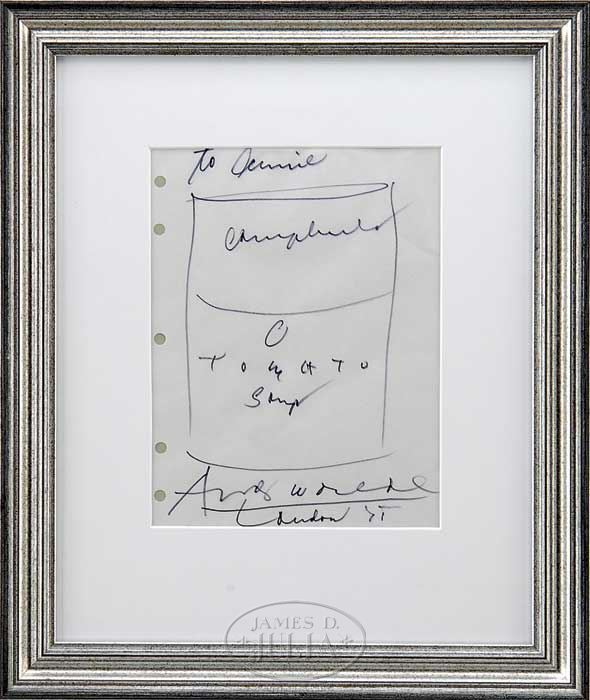 to Jennie
Campbells
O
TOMATO
Soup
Andy Warhol
London 75
JAMES D.
JULIA